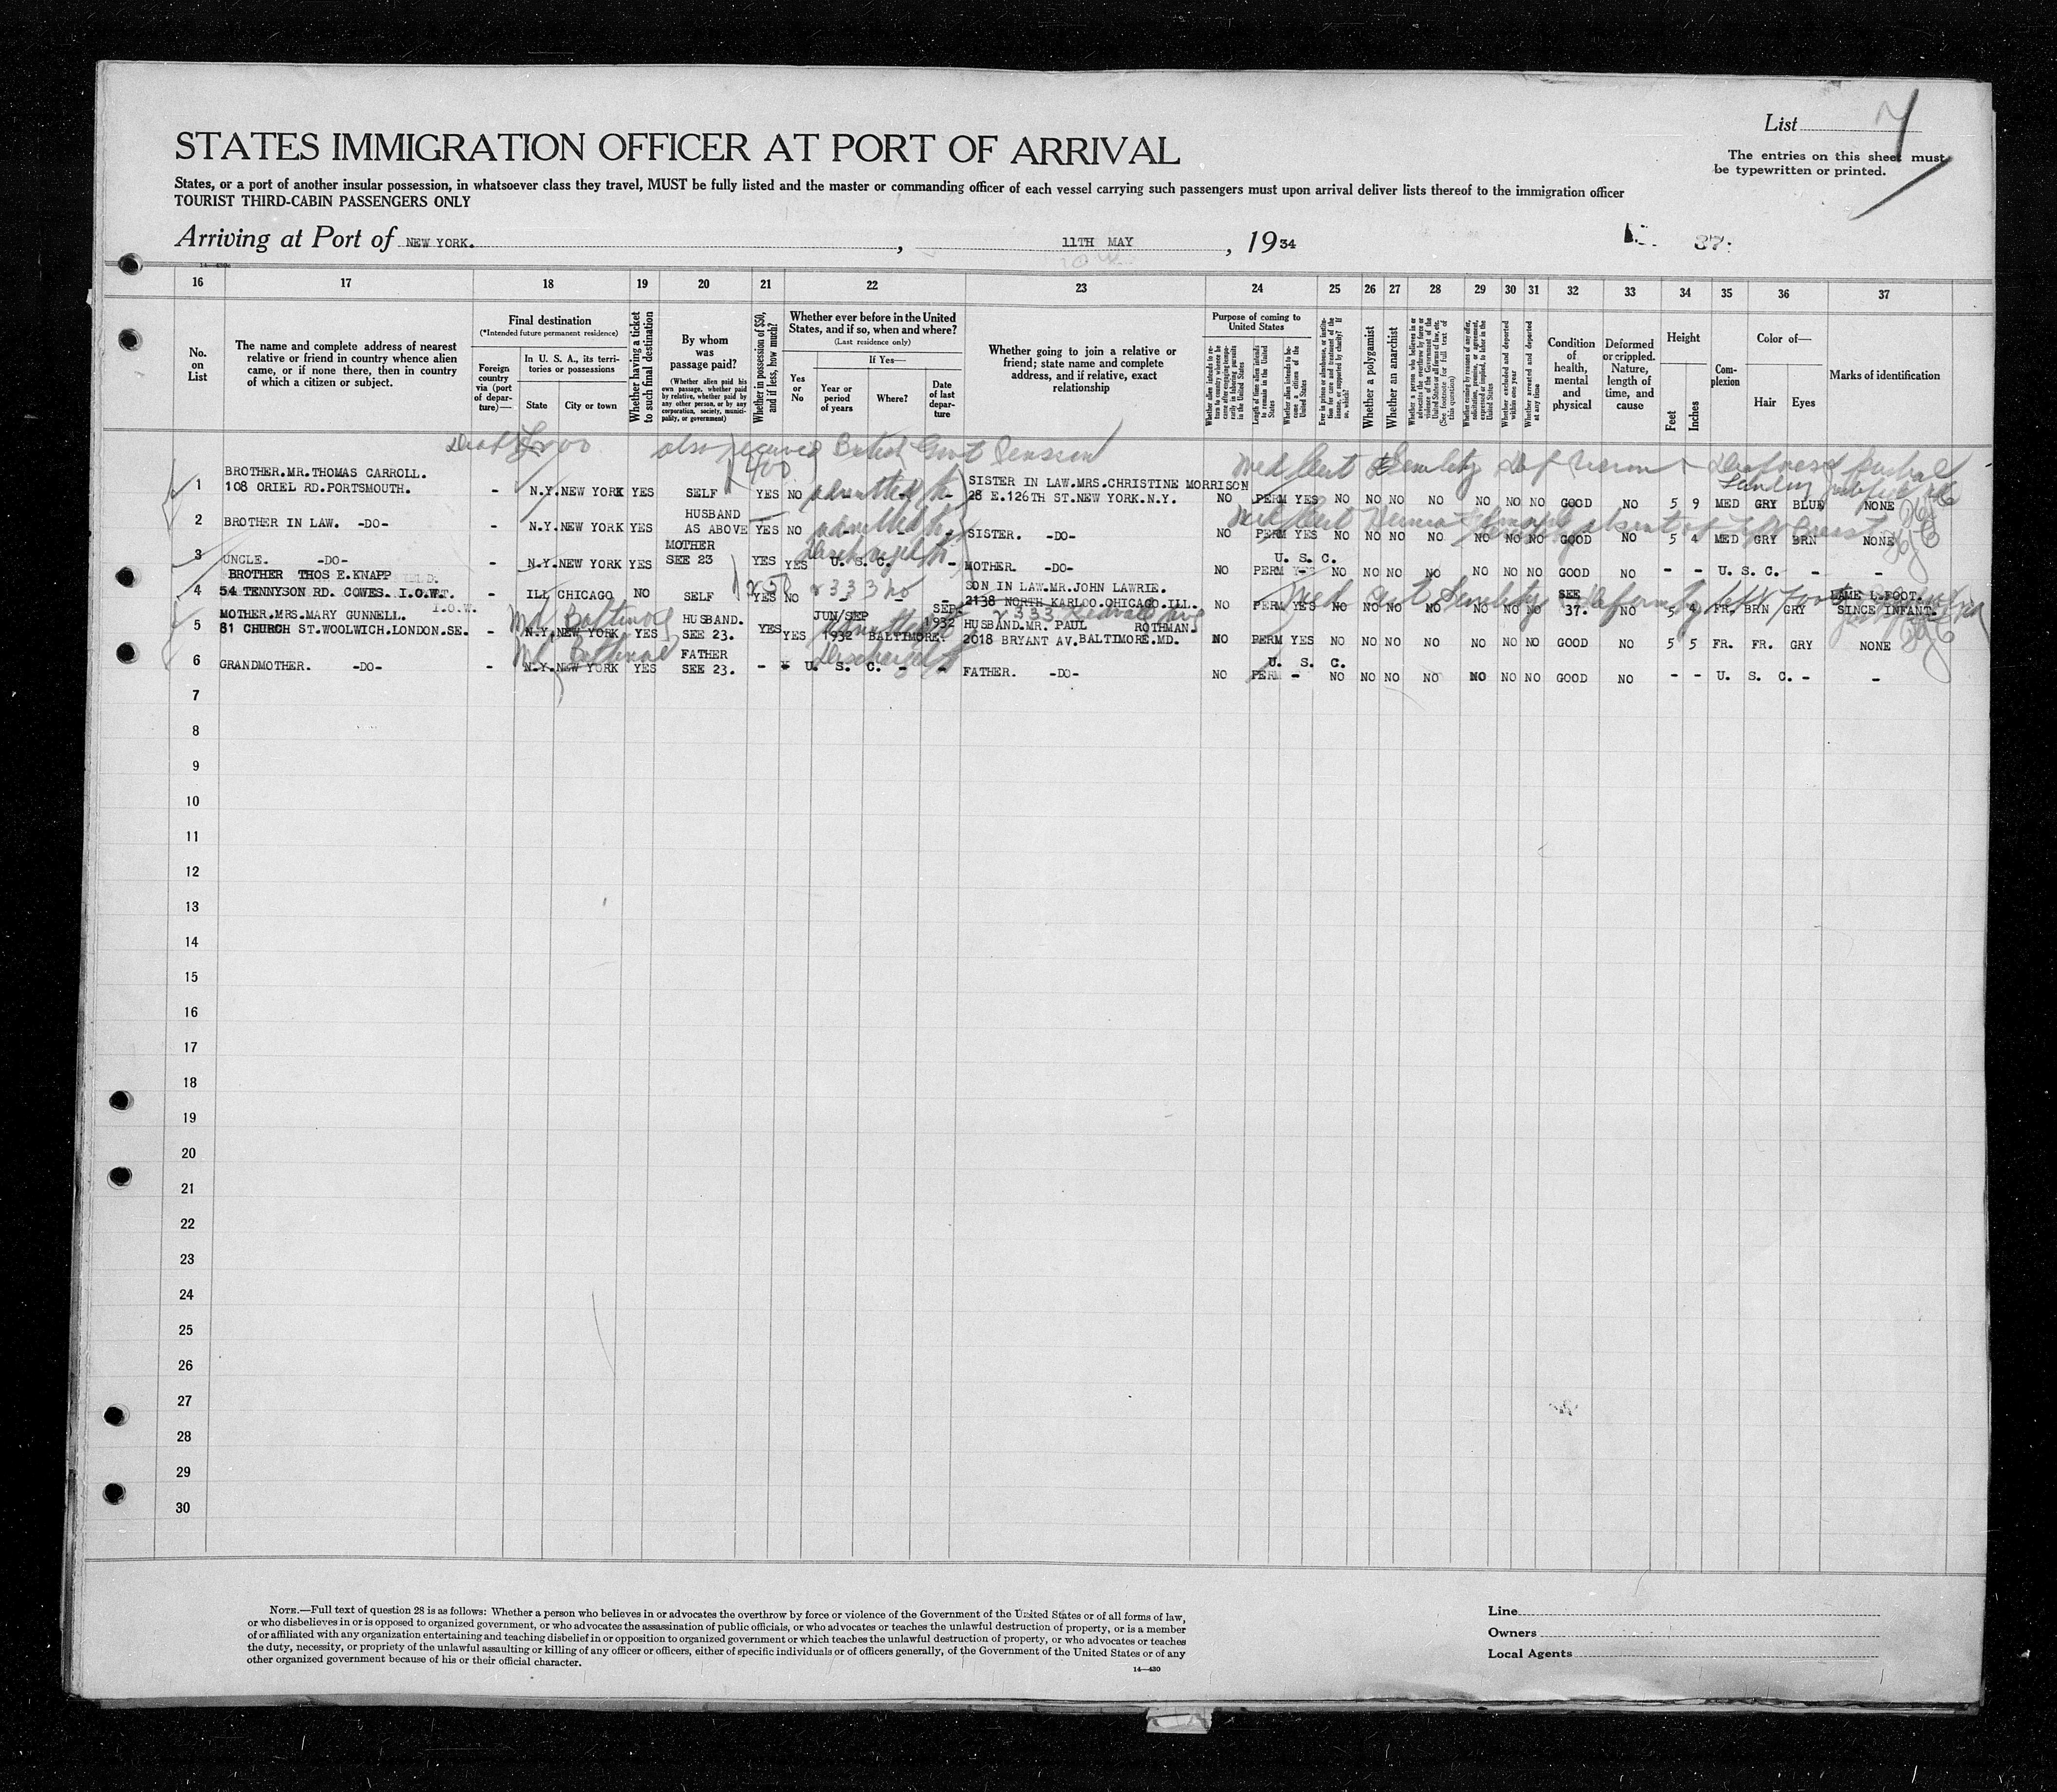 List
STATES IMMIGRATION OFFICER AT PORT OF ARRIVAL
The entries on this sheet must
be typewritten or printed.
States, or a port of another insular possession, in whatsoever class they travel, MUST be fully listed and the master or commanding officer of each vessel carrying such passengers must upon arrival deliver lists thereof to the immigration officer
TOURIST THIRD-CABIN PASSENGERS ONLY
Arriving at Port of NEW YORK. , 11TH MAY , 1934
37.
16 17 18 19 20 21 22 23 24 25 26 27 28 29 30 31 32 33 34 35 36 37
No. on List
The name and complete address of nearest relative or friend in country whence alien came, or if none there, then in country of which a citizen or subject.
Final destination
(*Intended future permanent residence)
Foreign country via (port of departure)—
In U. S. A., its territories or possessions
State City or town
Whether having a ticket to such final destination
By whom was passage paid?
(Whether alien paid his own passage, whether paid by relative, whether paid by any other person, or by any corporation, society, municipality, or government)
Whether in possession of $50, and if less, how much?
Whether ever before in the United States, and if so, when and where?
(Last residence only)
Yes or No
If Yes—
Year or period of years
Where?
Date of last departure
Whether going to join a relative or friend; state name and complete address, and if relative, exact relationship
Purpose of coming to United States
Length of time alien intends to remain in the United States
Whether alien intends to become a citizen of the United States
Whether a polygamist
Whether an anarchist
Whether excluded and deported within one year
Whether arrested and deported at any time
Condition of health, mental and physical
Deformed or crippled. Nature, length of time, and cause
Height
Feet Inches
Complexion
Color of—
Hair Eyes
Marks of identification
also receives British Govt Pension
BROTHER.MR.THOMAS CARROLL.
1 108 ORIEL RD.PORTSMOUTH. - N.Y. NEW YORK YES SELF YES NO - - - SISTER IN LAW.MRS.CHRISTINE MORRISON
28 E.126TH ST.NEW YORK.N.Y. NO PERM YES NO NO NO NO NO NO NO GOOD NO 5 9 MED GRY BLUE NONE
2 BROTHER IN LAW. -DO- - N.Y. NEW YORK YES HUSBAND AS ABOVE YES NO - - - SISTER. -DO- NO PERM YES NO NO NO NO NO NO NO GOOD NO 5 4 MED GRY BRN NONE
3 UNCLE. -DO- - N.Y. NEW YORK YES MOTHER SEE 23 YES YES U. S. C. - MOTHER. -DO- NO PERM U. S. C. NO NO NO NO NO NO NO GOOD NO - - U. S. C. - -
BROTHER THOS E.KNAPP
4 54 TENNYSON RD. COWES. I.O.W. - ILL CHICAGO NO SELF YES NO - - - SON IN LAW.MR.JOHN LAWRIE.
2138 NORTH KARLOO.CHICAGO.ILL. NO PERM YES NO NO NO NO NO NO NO SEE 37. NO 5 4 FR. BRN GRY LAME L.FOOT. SINCE INFANT.
I.O.W.
MOTHER.MRS.MARY GUNNELL.
5 81 CHURCH ST.WOOLWICH.LONDON.SE. - Md Baltimore N.Y. NEW YORK YES HUSBAND. SEE 23. YES YES JUN/SEP 1932 BALTIMORE. SEP 1932 HUSBAND.MR. PAUL ROTHMAN.
2018 BRYANT AV.BALTIMORE.MD. NO PERM YES NO NO NO NO NO NO NO GOOD NO 5 5 FR. FR. GRY NONE
6 GRANDMOTHER. -DO- - Md Baltimore N.Y. NEW YORK YES FATHER SEE 23. - U. S. C. - - FATHER. -DO- NO PERM - U. S. C. NO NO NO NO NO NO NO GOOD NO - - U. S. C. - -
7
8
9
10
11
12
13
14
15
16
17
18
19
20
21
22
23
24
25
26
27
28
29
30
NOTE.—Full text of question 28 is as follows: Whether a person who believes in or advocates the overthrow by force or violence of the Government of the United States or of all forms of law,
or who disbelieves in or is opposed to organized government, or who advocates the assassination of public officials, or who advocates or teaches the unlawful destruction of property, or is a member
of or affiliated with any organization entertaining and teaching disbelief in or opposition to organized government or which teaches the unlawful destruction of property, or who advocates or teaches
the duty, necessity, or propriety of the unlawful assaulting or killing of any officer or officers, either of specific individuals or of officers generally, of the Government of the United States or of any
other organized government because of his or their official character.
14—430
Line
Owners
Local Agents